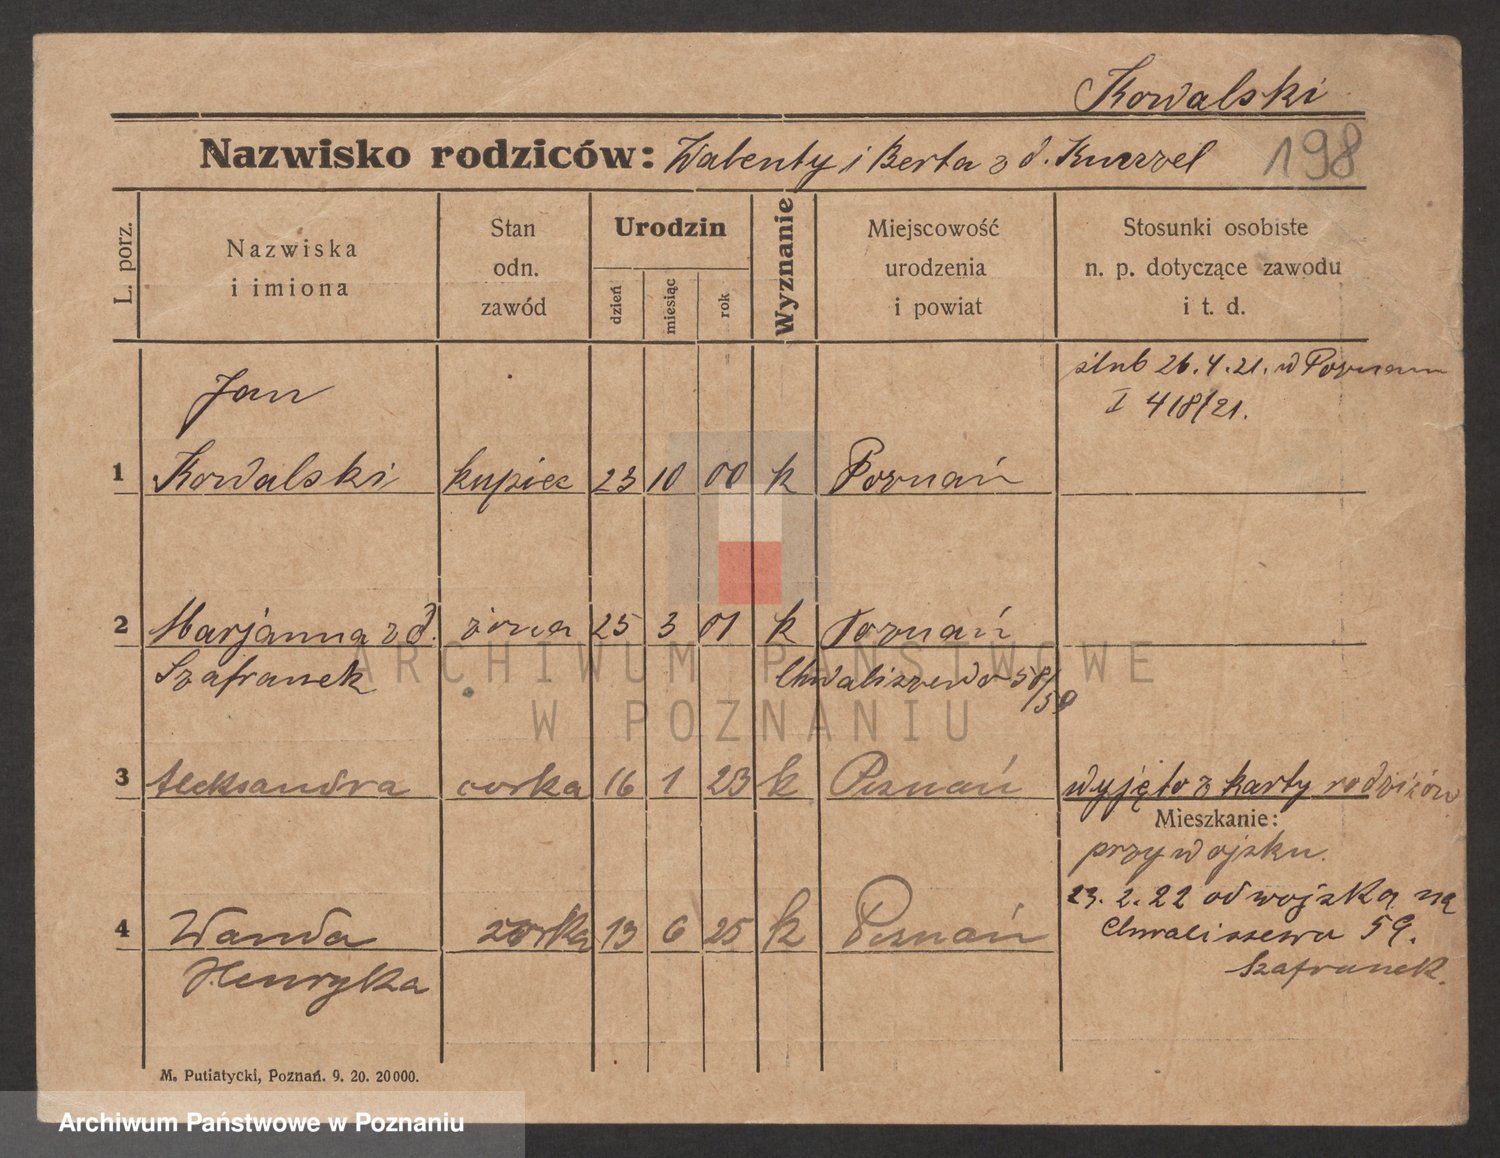 Kowalski
Nazwisko rodziców: Walenty i Berta z d. Kunzel
198
L. porz.
Nazwiska
i imiona
Stan
odn.
zawód
Urodzin
dzień
miesiąc
rok
Wyznanie
Miejscowość
urodzenia
i powiat
Stosunki osobiste
n. p. dotyczące zawodu
i t. d.
ślub 26.4.21. w Poznaniu
I 418/21.
Jan
1 Kowalski kupiec 23 10 00 k Poznań
2 Marjanna z d. żona 25 3 01 k Poznań
Szafranek Chwaliszewo 58/59
ARCHIWUM PAŃSTWOWE
W POZNANIU
3 Aleksandra corka 16 1 23 k Poznań wyjęto z karty rodziców
Mieszkanie:
przy wojsku.
23.2.22 od wojska na
4 Wanda corka 13 6 25 k Poznań Chwaliszewo 59.
Henryka Szafranek.
M. Putiatycki, Poznań. 9. 20. 20000.
Archiwum Państwowe w Poznaniu